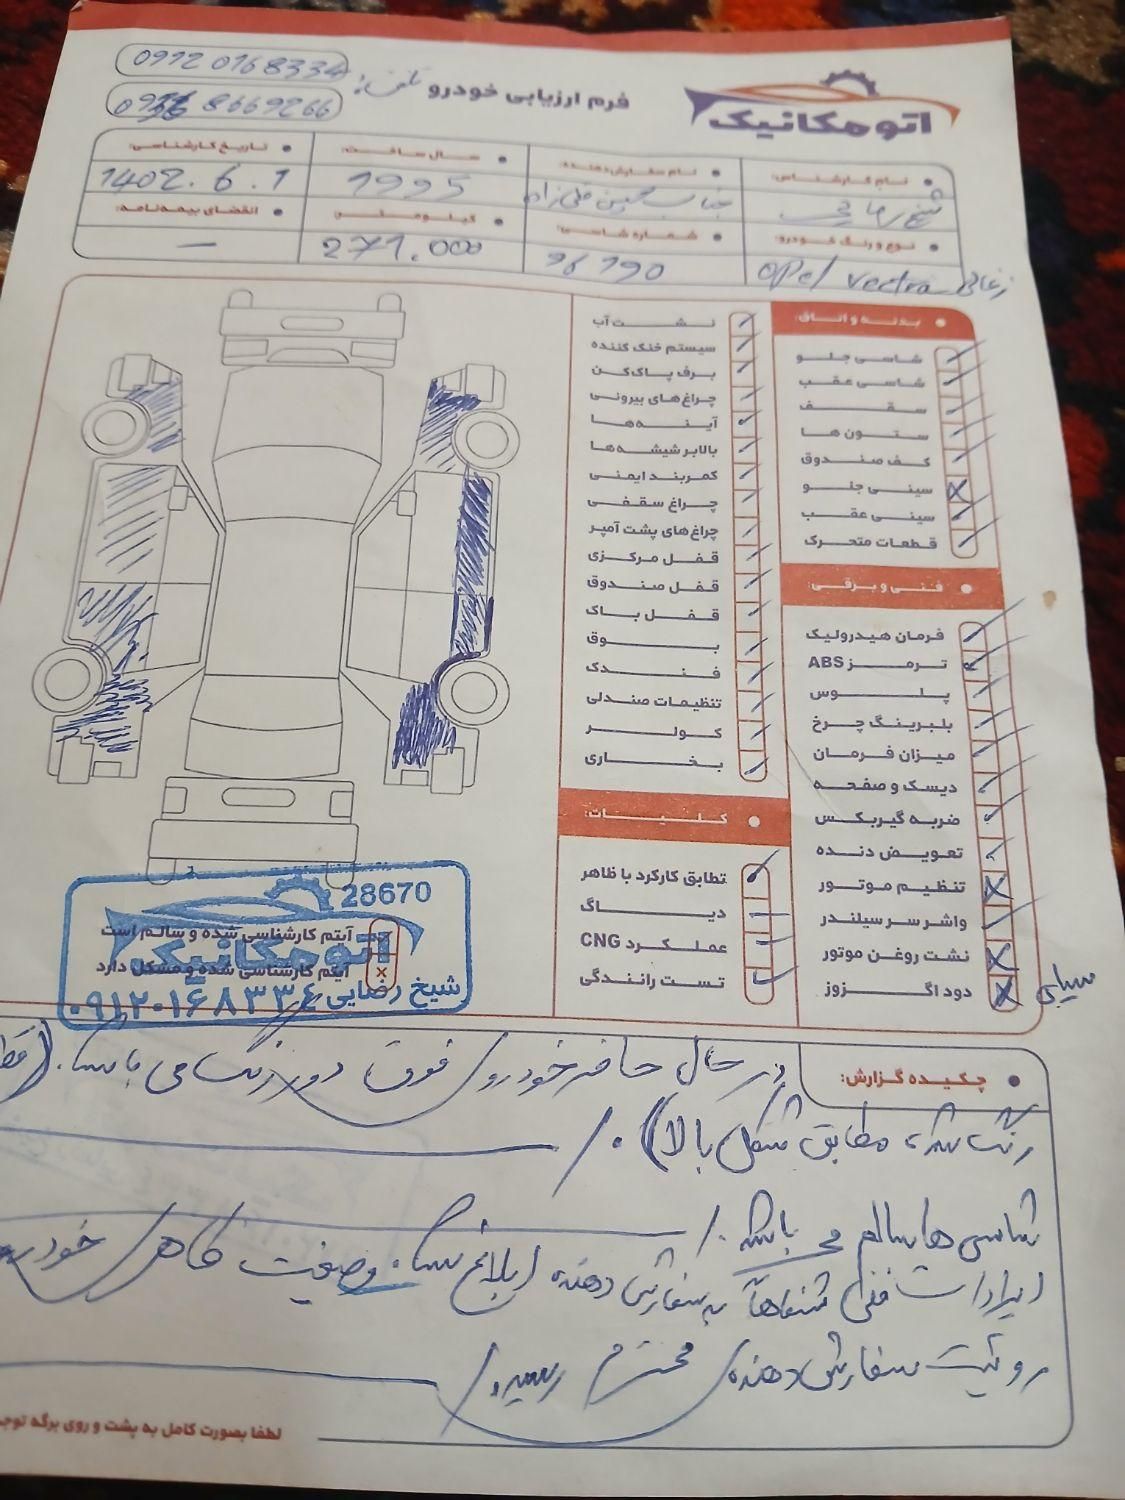 0912 0168334
فرم ارزیابی خودرو تلفن:
اتومکانیک
نام کارشناس:
نام سفارش‌دهنده:
سال ساخت:
تاریخ کارشناسی:
شیخ رضایی
جناب
1995
1402.6.1
نوع و رنگ خودرو:
شماره شاسی:
کیلومتر:
انقضای بیمه‌نامه:
opel vectra
96790
271.000
—
بدنه و اتاق:
شاسی جلو
شاسی عقب
سقف
ستون ها
کف صندوق
سینی جلو
سینی عقب
قطعات متحرک
فنی و برقی:
فرمان هیدرولیک
ترمز ABS
پلوس
بلبرینگ چرخ
میزان فرمان
دیسک و صفحه
ضربه گیربکس
تعویض دنده
تنظیم موتور
واشر سر سیلندر
نشت روغن موتور
دود اگزوز
نشت آب
سیستم خنک کننده
برف پاک‌کن
چراغ‌های بیرونی
آینه‌ها
بالابر شیشه‌ها
کمربند ایمنی
چراغ سقفی
چراغ‌های پشت آمپر
قفل مرکزی
قفل صندوق
قفل باک
بوق
فندک
تنظیمات صندلی
کولر
بخاری
کلیات:
تطابق کارکرد با ظاهر
دیاگ
عملکرد CNG
تست رانندگی
28670
آیتم کارشناسی شده و سالم است
اتومکانیک
آیتم کارشناسی شده و مشکل دارد
شیخ رضایی ۰۹۱۲۰۱۶۸۳۳۴
چکیده گزارش:
در حال حاضر خودرو فوق دور رنگ می باشد.
رنگ شده مطابق شکل بالا)
شاسی ها سالم می باشد
ایرادات فنی شفاهاً به سفارش دهنده ابلاغ شد. وضعیت ظاهر خودرو
روئیت سفارش دهنده محترم رسید
لطفا بصورت کامل به پشت و روی برگه توجه